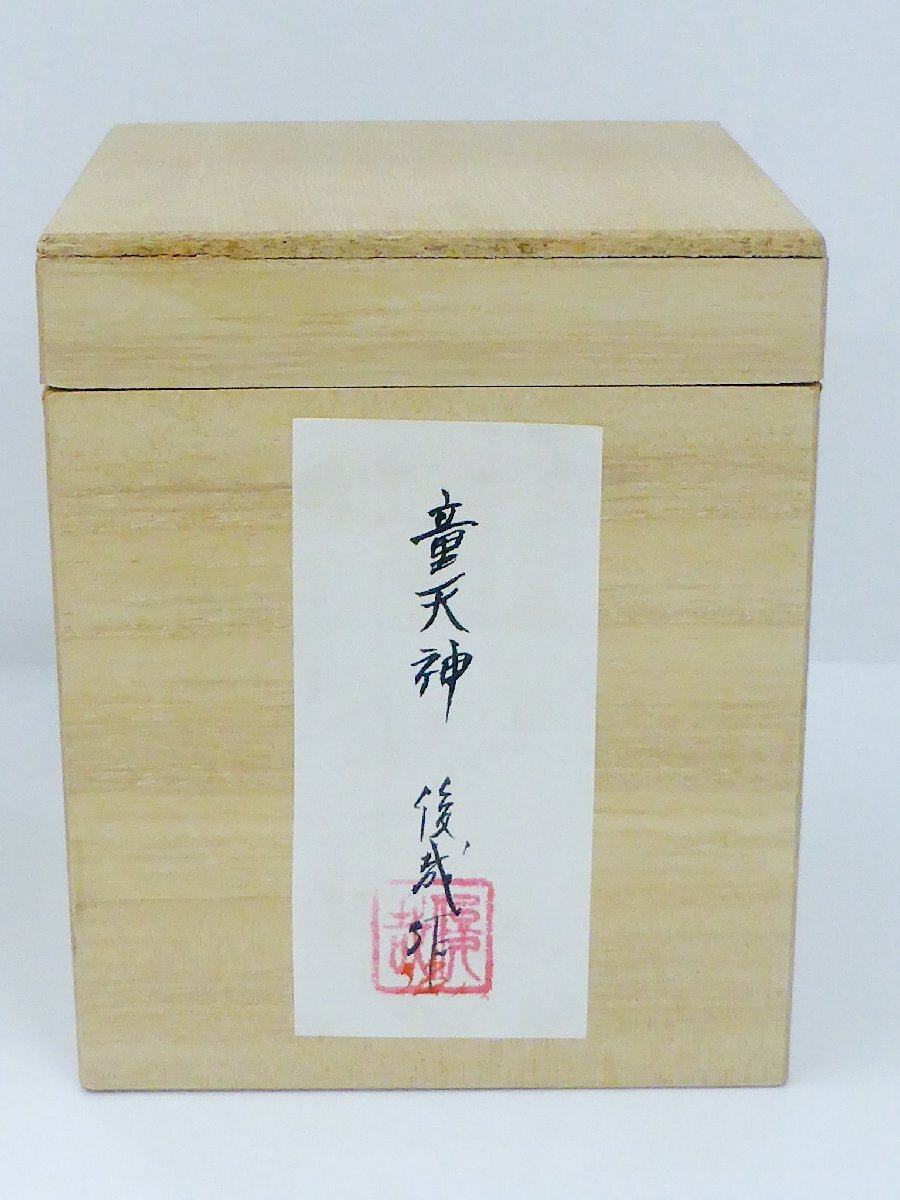 童天神 俊哉作